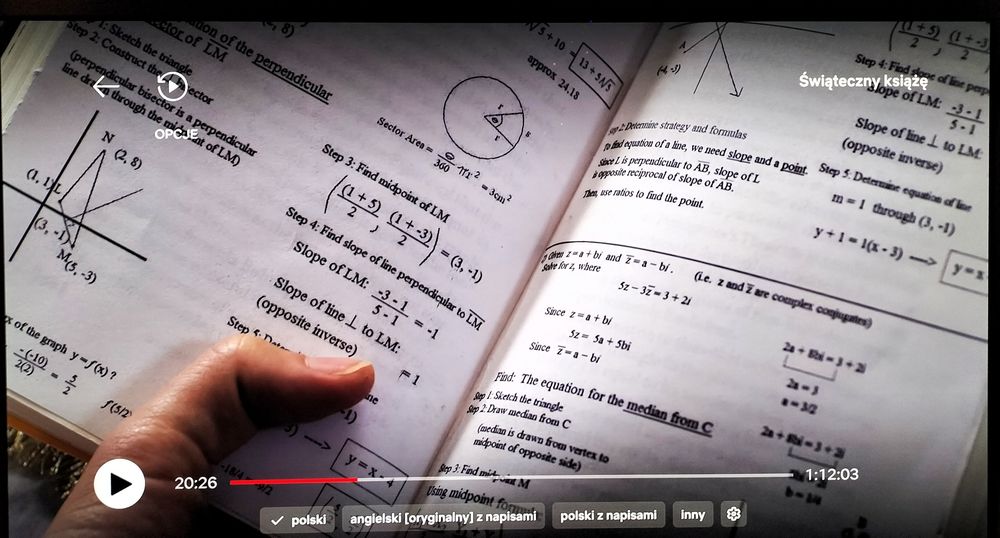 Świąteczny książę
OPCJE
ation of the perpendicular
ector of LM
Step 1: Sketch the triangle
Step 2: Construct the
(perpendicular bisector is a perpendicular
through the midpoint of LM)
N (2, 8)
(1, 1) L
(3, -1)
M (5, -3)
of the graph y = f(x) ?
-(-10) / 2(2) = 5/2
f(5/2
√5 + 10 = 13 + 5√5
approx 24.18
r
θ
s
r
Sector Area = θ/360 πr² = 3cm²
Step 3: Find midpoint of LM
((1 + 5)/2 , (1 + -3)/2) = (3, -1)
Step 4: Find slope of line perpendicular to LM
Slope of LM: -3 - 1 / 5 - 1 = -1
Slope of line ⊥ to LM:
(opposite inverse)
= 1
y = x - 4
A
(-4, -3)
Step 2: Determine strategy and formulas
To find equation of a line, we need slope and a point.
Since L is perpendicular to AB, slope of L
is opposite reciprocal of slope of AB.
Then, use ratios to find the point.
(1 + 5)/2 , (1 + -3)/2
Step 4: Find slope of line perp
Slope of LM: -3 - 1 / 5 - 1
Slope of line ⊥ to LM:
(opposite inverse)
Step 5: Determine equation of line
m = 1 through (3, -1)
y + 1 = 1(x - 3)
y = x
Given z = a + bi and z̅ = a - bi. (i.e. z and z̅ are complex conjugates)
Solve for z, where
5z - 3z̅ = 3 + 2i
Since z = a + bi
5z = 5a + 5bi
Since z̅ = a - bi
2a + 8bi = 3 + 2i
2a = 3
a = 3/2
2a + 8bi = 3 + 2i
b = 1/4
Find: The equation for the median from C
Step 1: Sketch the triangle
Step 2: Draw median from C
(median is drawn from vertex to
midpoint of opposite side)
Step 3: Find midpoint M
Using midpoint
20:26
1:12:03
polski
angielski [oryginalny] z napisami
polski z napisami
inny